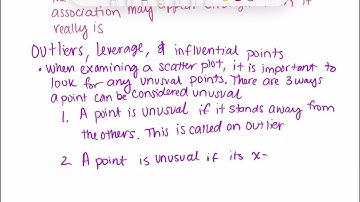 association may appear
it
really is
Outliers, leverage, & influential points
• When examining a scatter plot, it is important to
look for any unusual points. There are 3 ways
a point can be considered unusual
1. A point is unusual if it stands away from
the others. This is called an outlier
2. A point is unusual if its x-